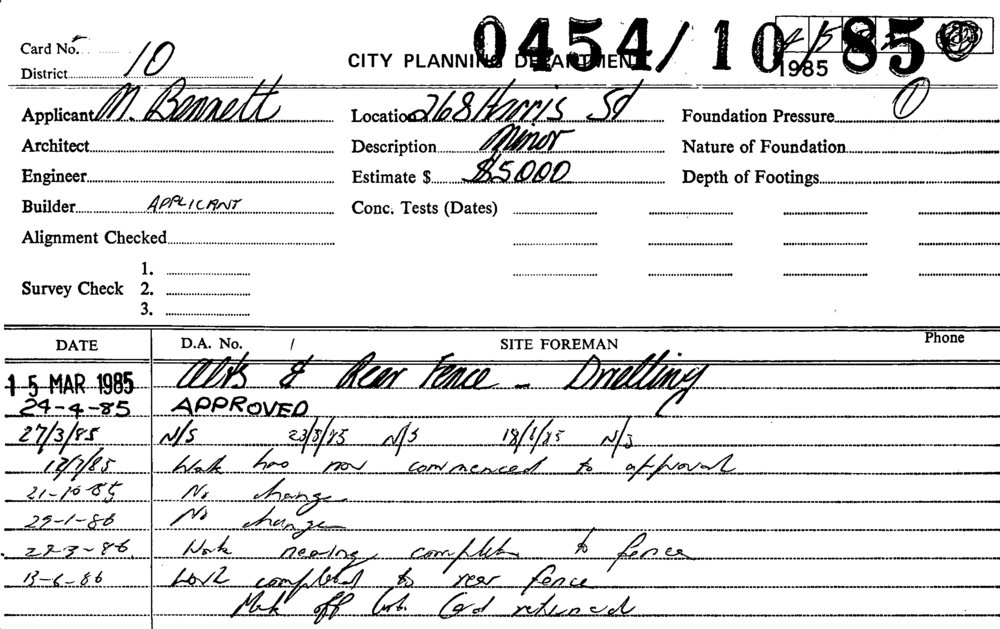 Card No. 0454/10 85
District 10 CITY PLANNING DEPARTMENT 1985
Applicant M. Bennett Location 268 Harris St Foundation Pressure
Architect Description Minor Nature of Foundation
Engineer Estimate $ $5000 Depth of Footings
Builder APPLICANT Conc. Tests (Dates)
Alignment Checked
1.
Survey Check 2.
3.
DATE D.A. No. / SITE FOREMAN Phone
15 MAR 1985 Alts & Rear Fence - Dwelling
24-4-85 APPROVED
27/3/85 N/S 23/5/85 N/S 18/6/85 N/S
12/7/85 Work has now commenced to approval
21-10-85 No change
29-1-86 No change
22-3-86 Work nearing completion to fence
13-6-86 Work completed to rear fence
Mark off Card returned